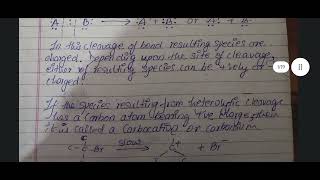 A : B : → A + :B or A: + B
In this cleavage of bond resulting species are
charged. Depending upon the site of cleavage,
either of resulting species can be +vely or -
charged!
If the species resulting from heterolytic cleavage
has a carbon atom bearing +ve charge, then
it is called a Carbocation or carbonium
C Br slow C+ + Br-
1/19